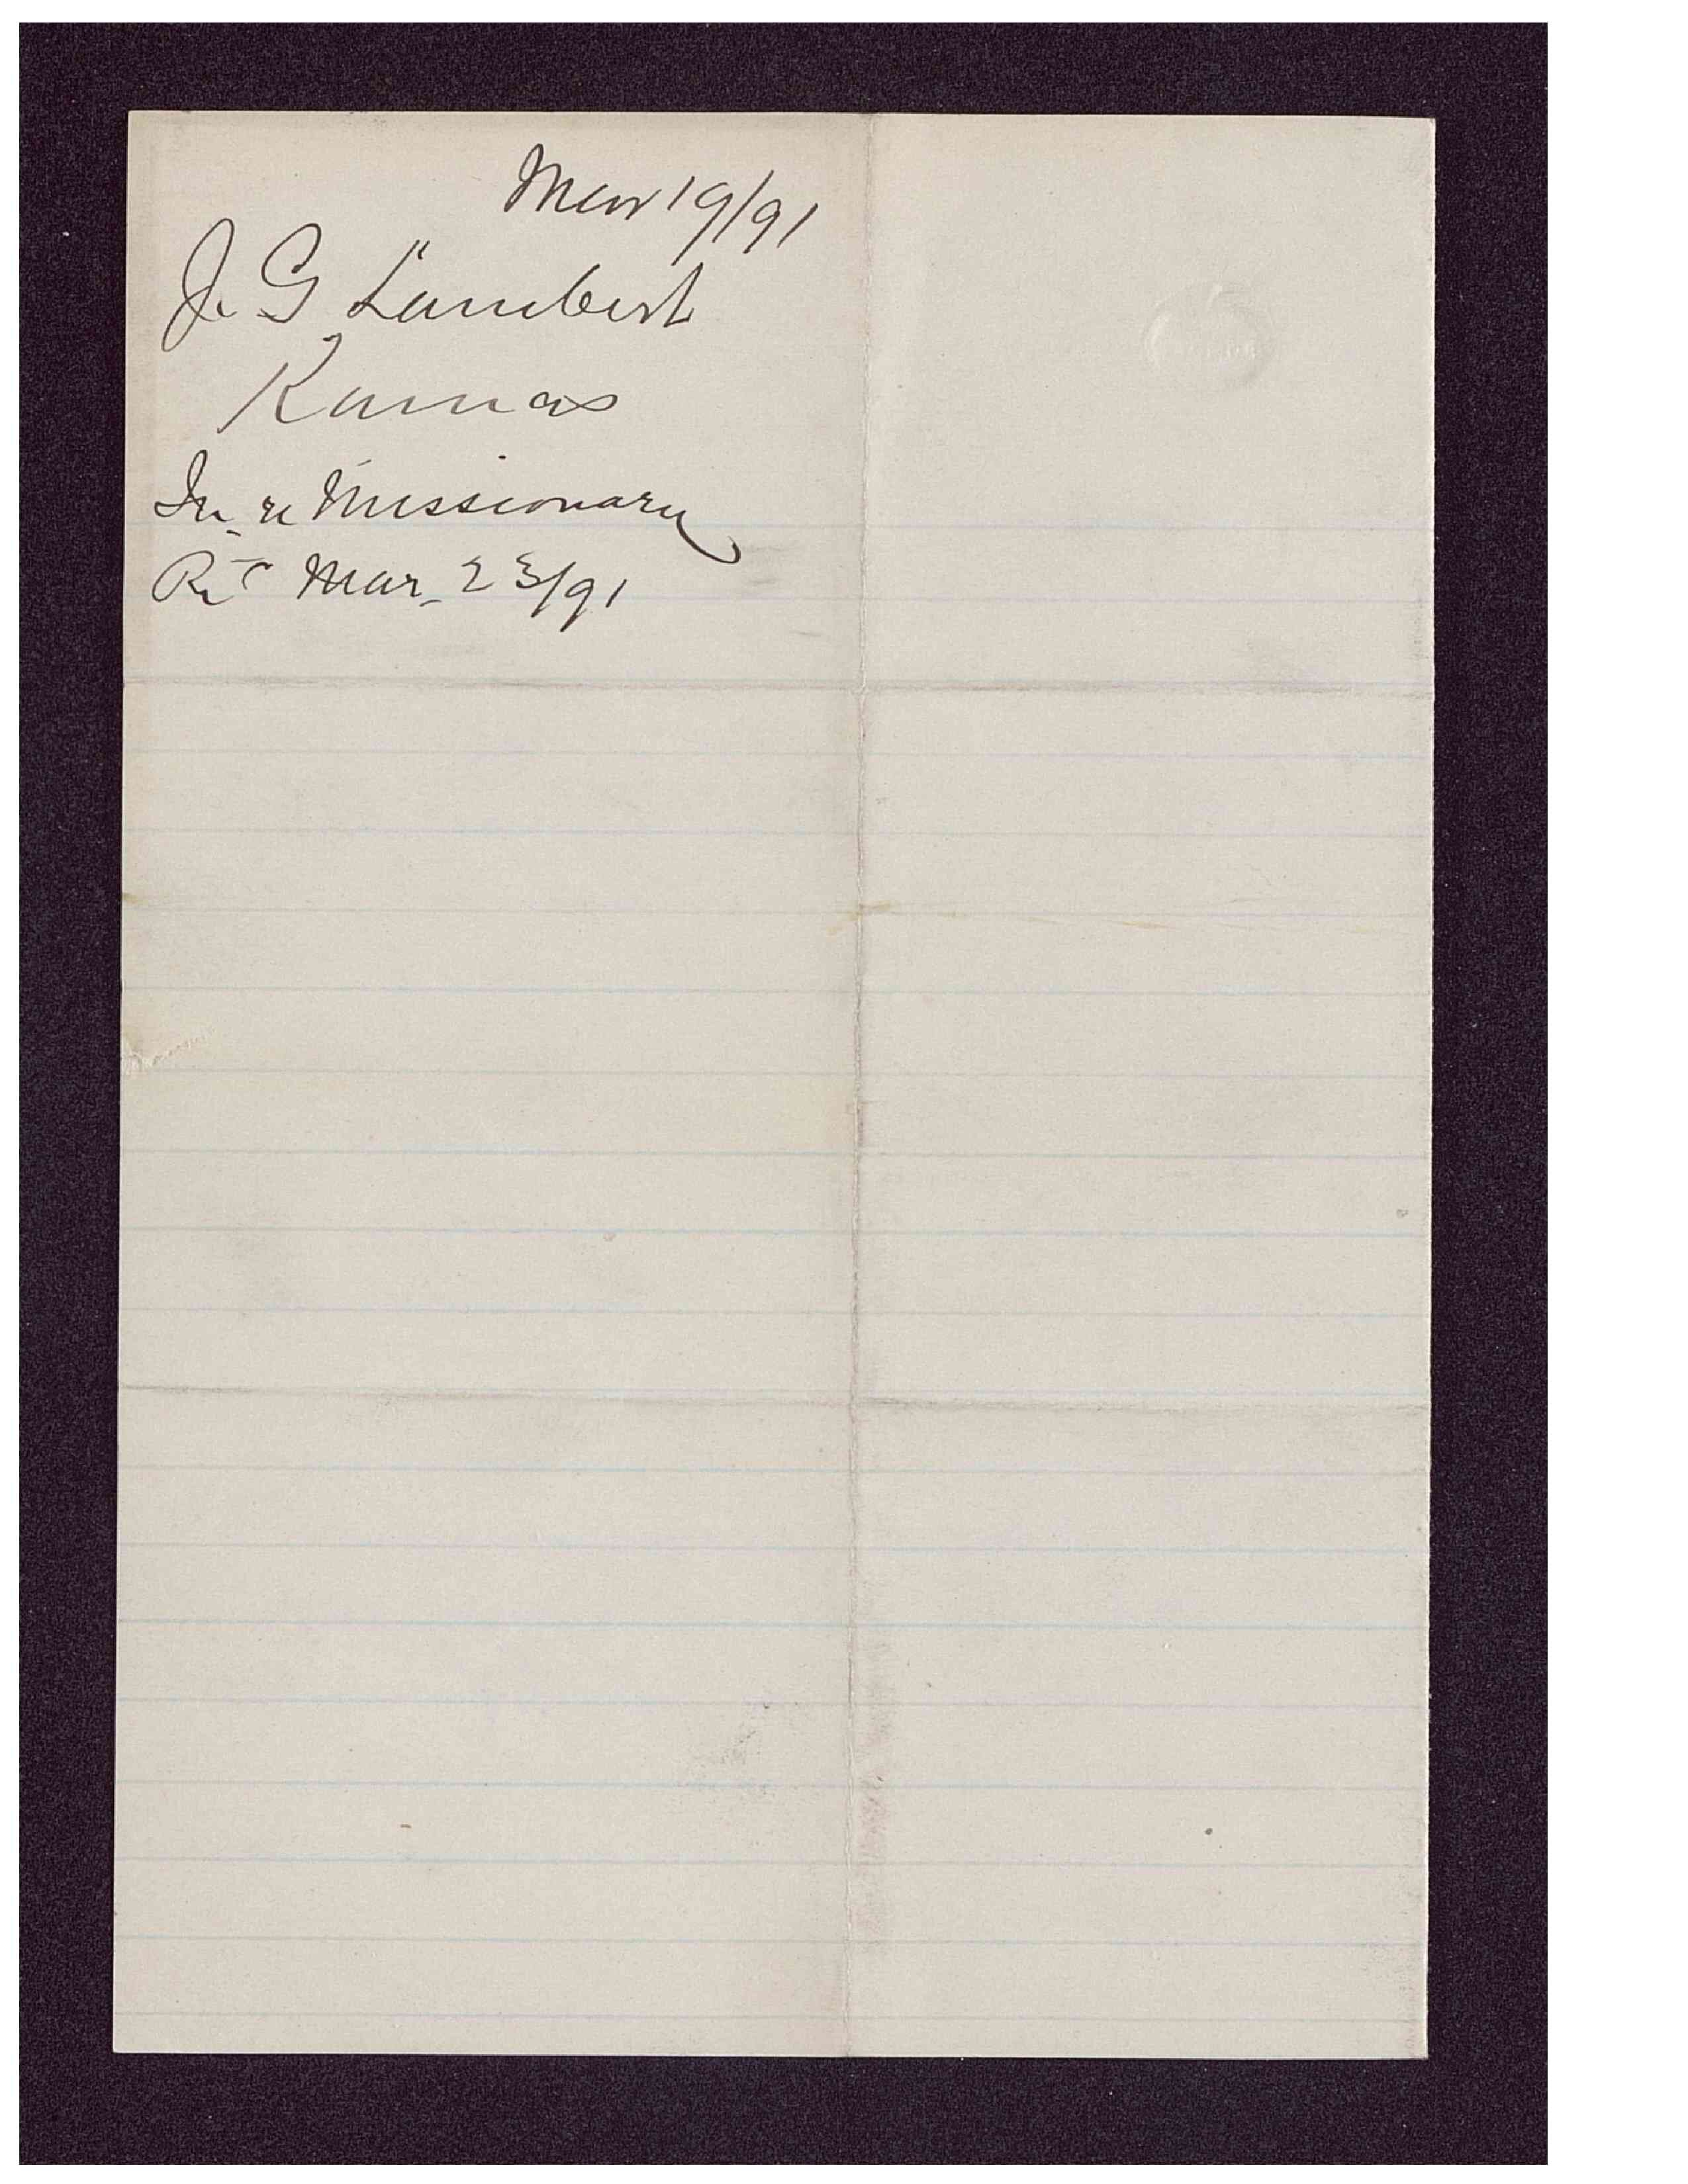 Mar 19/91
J. G Lambert
Kamas
In re Missionary
Rec Mar. 23/91